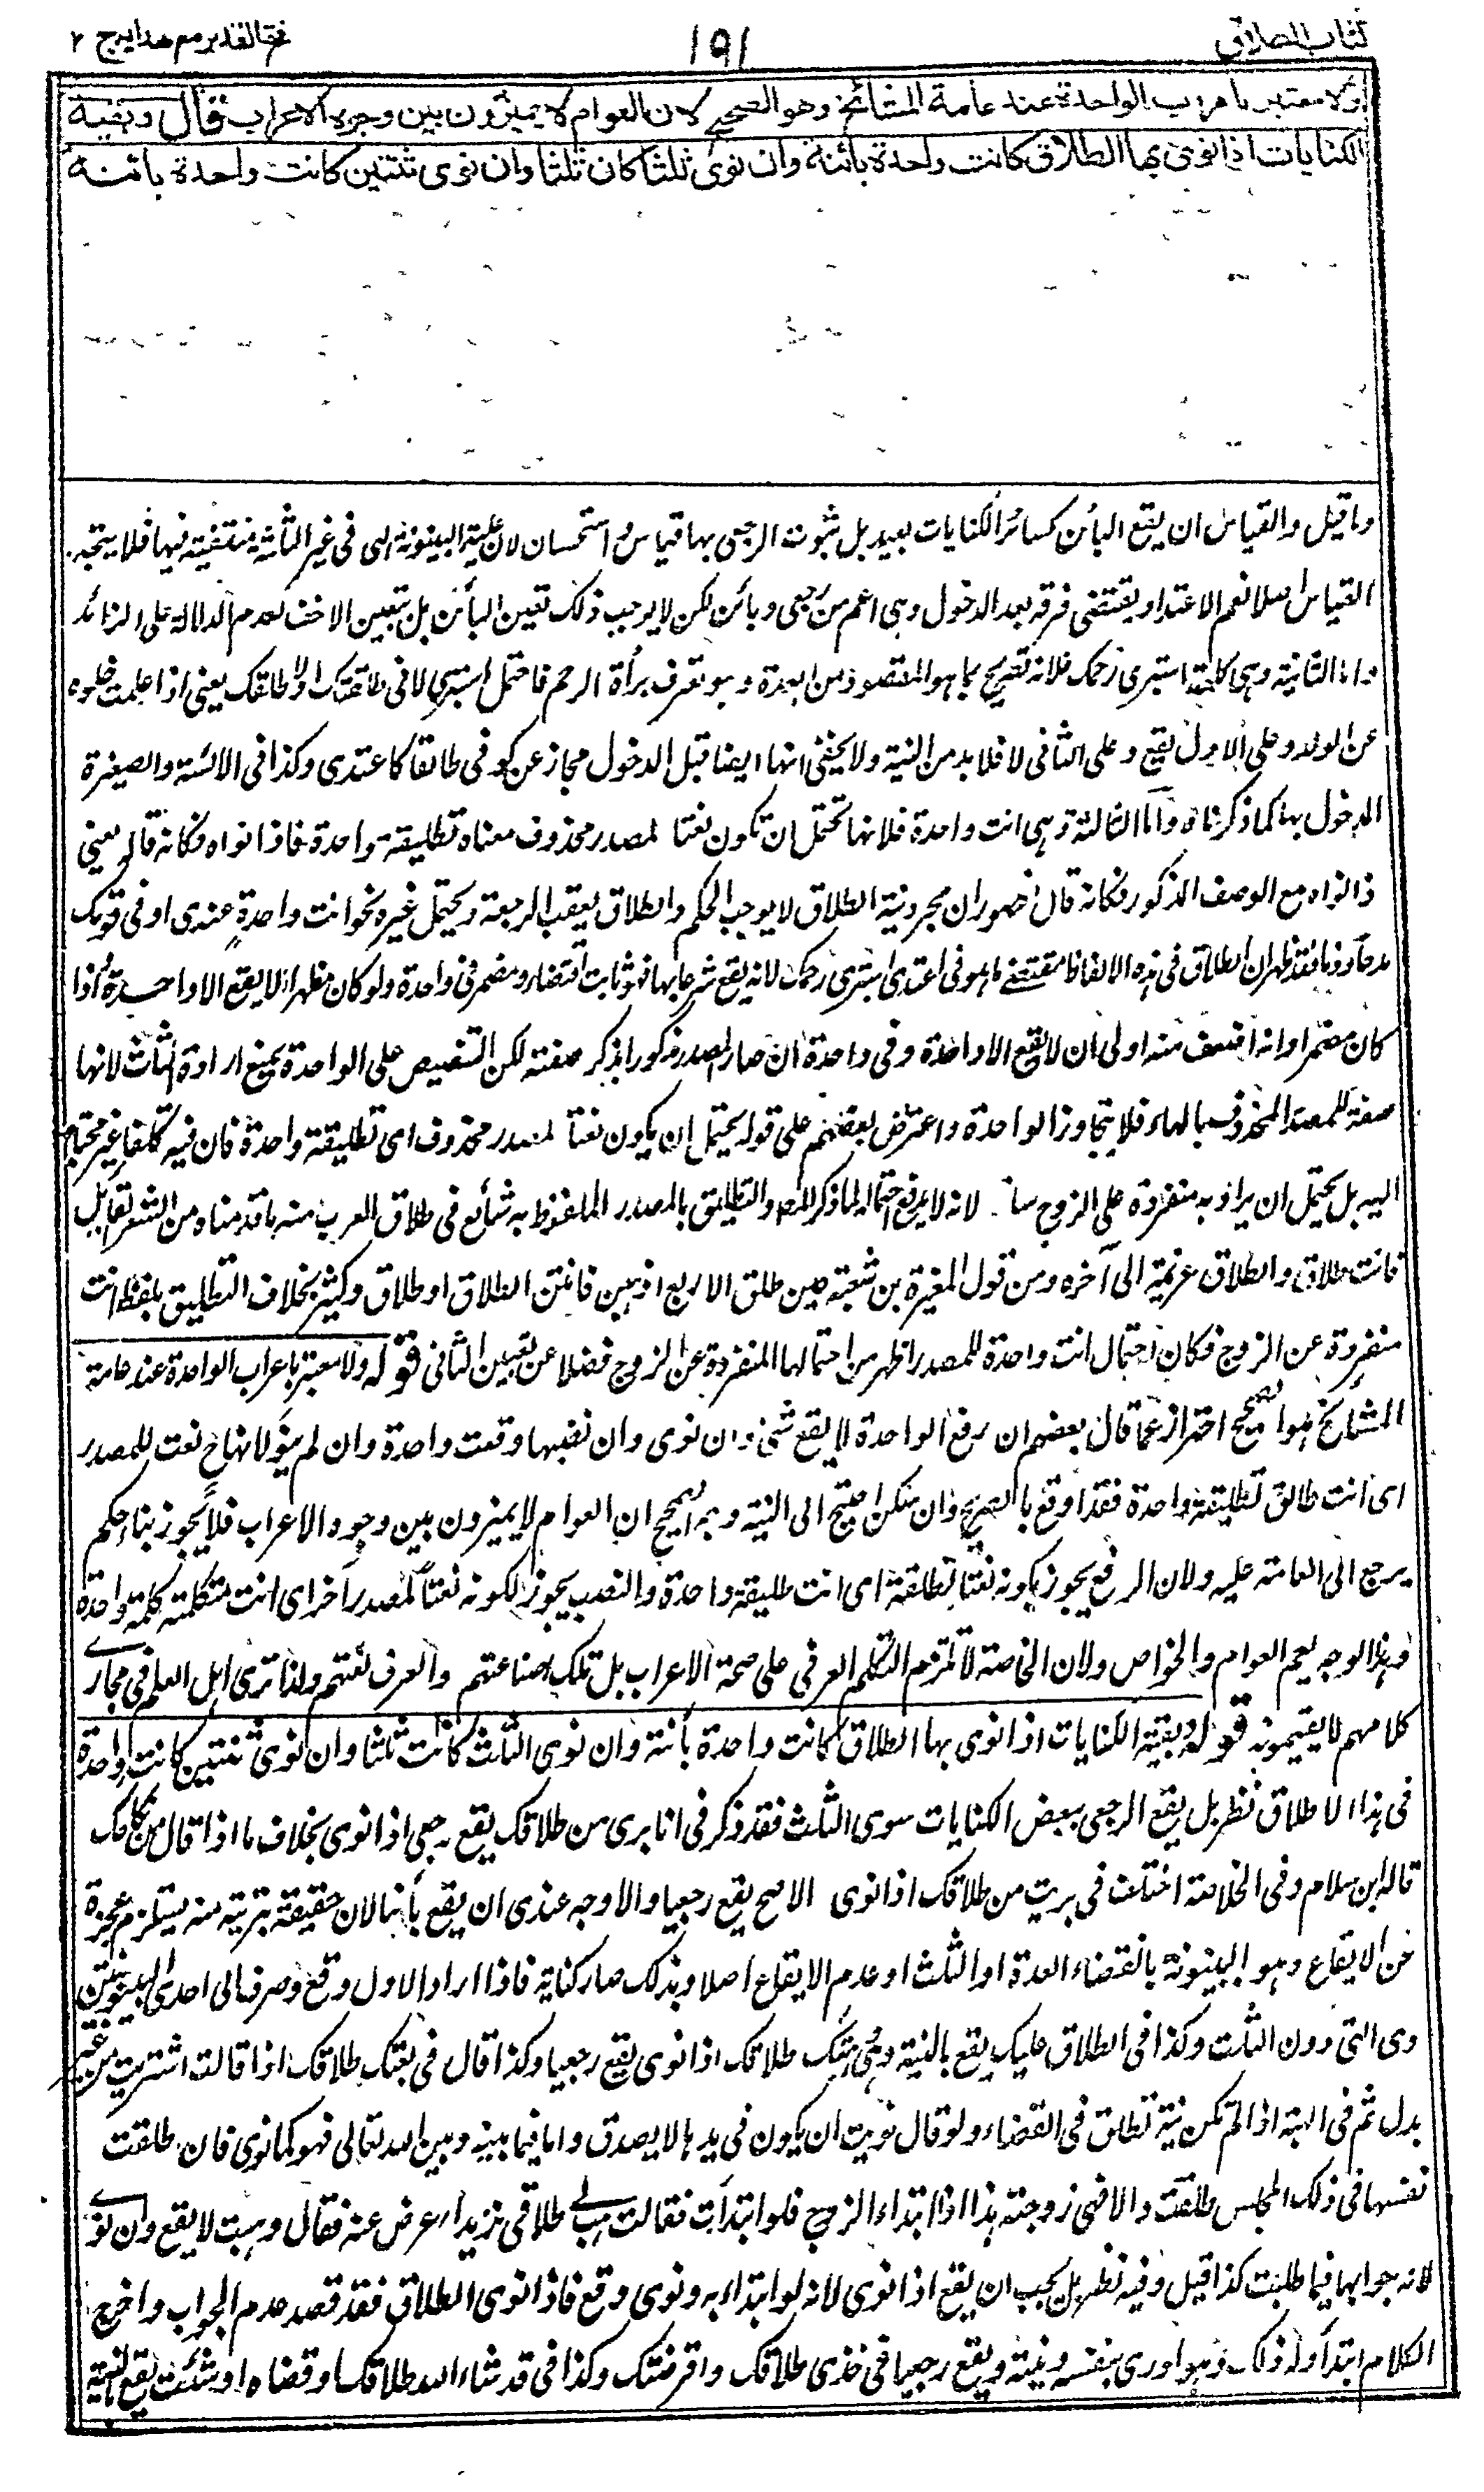 كتاب الطلاق
١٩١
فتح القدير مع هدايه ج ٢
ولا معتبر باعراب الواحدة عند عامة المشائخ وهو الصحيح لان العوام لا يميزون بين وجوه الاعراب قال وبقية
الكنايات اذا نوى بها الطلاق كانت واحدة بائنة وان نوى ثلثا كان ثلثا وان نوى ثنتين كانت واحدة بائنة
وما قيل والقياس ان يقع البائن كسائر الكنايات بعيد بل ثبوت الرجعى بها قياس واستحسان لان علية البينونة التى فى غير الثلثة منتفية فيها فلا يتجه
القياس اصلا نعم الاعتداد يقتضى فرقة بعد الدخول وهى اعم من رجعى وبائن لكن لا يوجب ذلك تعين البائن بل تعيين الاخف لعدم الدلالة على الزائد
واما الثانية وهى كلمة استبرى رحمك فلانه تصريح بما هو المقصود من العدة وهو تعرف براءة الرحم فاحتمل استبرى لانى طلقتك اولا طلقك يعنى اذا علمت خلوه
عن الولد وعلى الاول يقع وعلى الثانى لا فلا بد من النية ولا يخفى انها ايضا قبل الدخول مجاز عن كونى طالقا كاعتدى وكذا فى الآئسة والصغيرة
المدخول بها كما ذكرناه واما الثالثة وهى انت واحدة فلانها تحتمل ان تكون نعتا لمصدر محذوف معناه تطليقة واحدة فاذا نواه فكانه قاله يعنى
اذا نواه مع الوصف المذكور فكانه قال لظهور ان مجرد نية الطلاق لا يوجب الحكم والطلاق يعقب الرجعة ويحتمل غيره نحو انت واحدة عندى او فى قومك
مدحا وذما فقد ظهر ان الطلاق فى هذه الالفاظ مقتضى كما هو فى اعتدى استبرى رحمك لانه يقع شرعا بها فهو ثابت اقتضاء ومضمر فى واحدة ولو كان مظهرا لا يقع الا واحدة فاذا
كان مضمرا وانه اضعف منه اولى ان لا يقع الا واحدة وفى واحدة ان صار المصدر مذكورا بذكر صفته لكن التنصيص على الواحدة يمنع ارادة الثلث لانها
صفة للمصدر المحذوف بالهاء فلا يتجاوز الواحدة واعترض بعضهم على قوله يحتمل ان يكون نعتا لمصدر محذوف اى تطليقة واحدة فان فيه تكلفا غير محتاج
اليه بل يحتمل ان يراد به منفردة على الزوج لانه لا يرفع احتماله لما ذكر المصنف والتطليق بالمصدر الملفوظ به شائع فى طلاق العرب منه ما قدمناه من الشعر
فانت طلاق والطلاق عزيمة الى آخره ومن قول المغيرة بن شعبة حين طلق الاربع اذهبن فانتن الطلاق او طلاق وكثير بخلاف التطليق بلفظ انت
منفردة عن الزوج فكان احتمال انت واحدة للمصدر اظهر من احتمالها المنفردة عن الزوج فضلا عن تعيين الثانى قوله ولا معتبر باعراب الواحدة عند عامة
المشائخ هو الصحيح احتراز عما قال بعضهم ان رفع الواحدة لا يقع شئ وان نوى وان نصبها وقعت واحدة وان لم ينو لانها ح نعت للمصدر
اى انت طالق تطليقة واحدة فقد اوقع بالصريح وان سكن احتيج الى النية وجه الصحيح ان العوام لا يميزون بين وجوه الاعراب فلا يجوز بناء حكم
يرجع الى العامة عليه ولان الرفع يجوز لكونه نعتا لطلقة اى انت طليقة واحدة والنصب يجوز لكونه نعتا لمصدر آخر اى انت متكلمة كلمة واحدة
وهذا الوجه يعم العوام والخواص ولان الخاصة لا تلتزم التكلم العرفى على صحة الاعراب بل تلك صناعتهم والعرف لغتهم ولذا ترى اهل العلم فى مجارى
كلامهم لا يقيمونه قوله وبقية الكنايات اذا نوى بها الطلاق كانت واحدة بائنة وان نوى الثلث كانت ثلثا وان نوى ثنتين كانت واحدة
فى هذا الاطلاق نظر بل يقع الرجعى ببعض الكنايات سوى الثلث فقد ذكر فى انا برئ من طلاقك يقع رجعى اذا نوى بخلاف ما اذا قال من نكاحك
قاله ابن سلام وفى الخلاصة اختلف فى برئت من طلاقك اذا نوى الاصح يقع رجعيا والاوجه عندى ان يقع بائنا لان حقيقة تبرئته منه يستلزم عجزه
عن الايقاع وهو البينونة بانقضاء العدة او الثلث او عدم الايقاع اصلا وبذلك صار كناية فاذا اراد الاول وقع وصرف الى احدى البينونتين
وهى التى دون الثلث وكذا فى الطلاق عليك يقع بالنية وفى وهبتك طلاقك اذا نوى يقع رجعيا وكذا قال فى بعتك طلاقك اذا قالت اشتريت من غير
بدل ثم فى الهبة اذا لم تكن نية تطلق فى القضاء ولو قال نويت ان يكون فى يدها لا يصدق واما فيما بينه وبين الله تعالى فهو كما نوى فان طلقت
نفسها فى ذلك المجلس طلقت والا فهى زوجته هذا اذا ابتداء الزوج فلو ابتدأت فقالت هب لى طلاقى تريد اعرض عنه فقال وهبت لا يقع وان نوى
لانه جوابها فيما طلبت كذا قيل وفيه نظر بل يجب ان يقع اذا نوى لانه لو ابتداء به ونوى وقع فاذا نوى الطلاق فقد قصد عدم الجواب واخرج
الكلام ابتدأ وله ذلك وهو ادرى بنفسه ونيته ويقع رجعيا فى خذى طلاقك واقرضتك وكذا فى قد شاء الله طلاقك او قضاه او شئت يقع بالنية